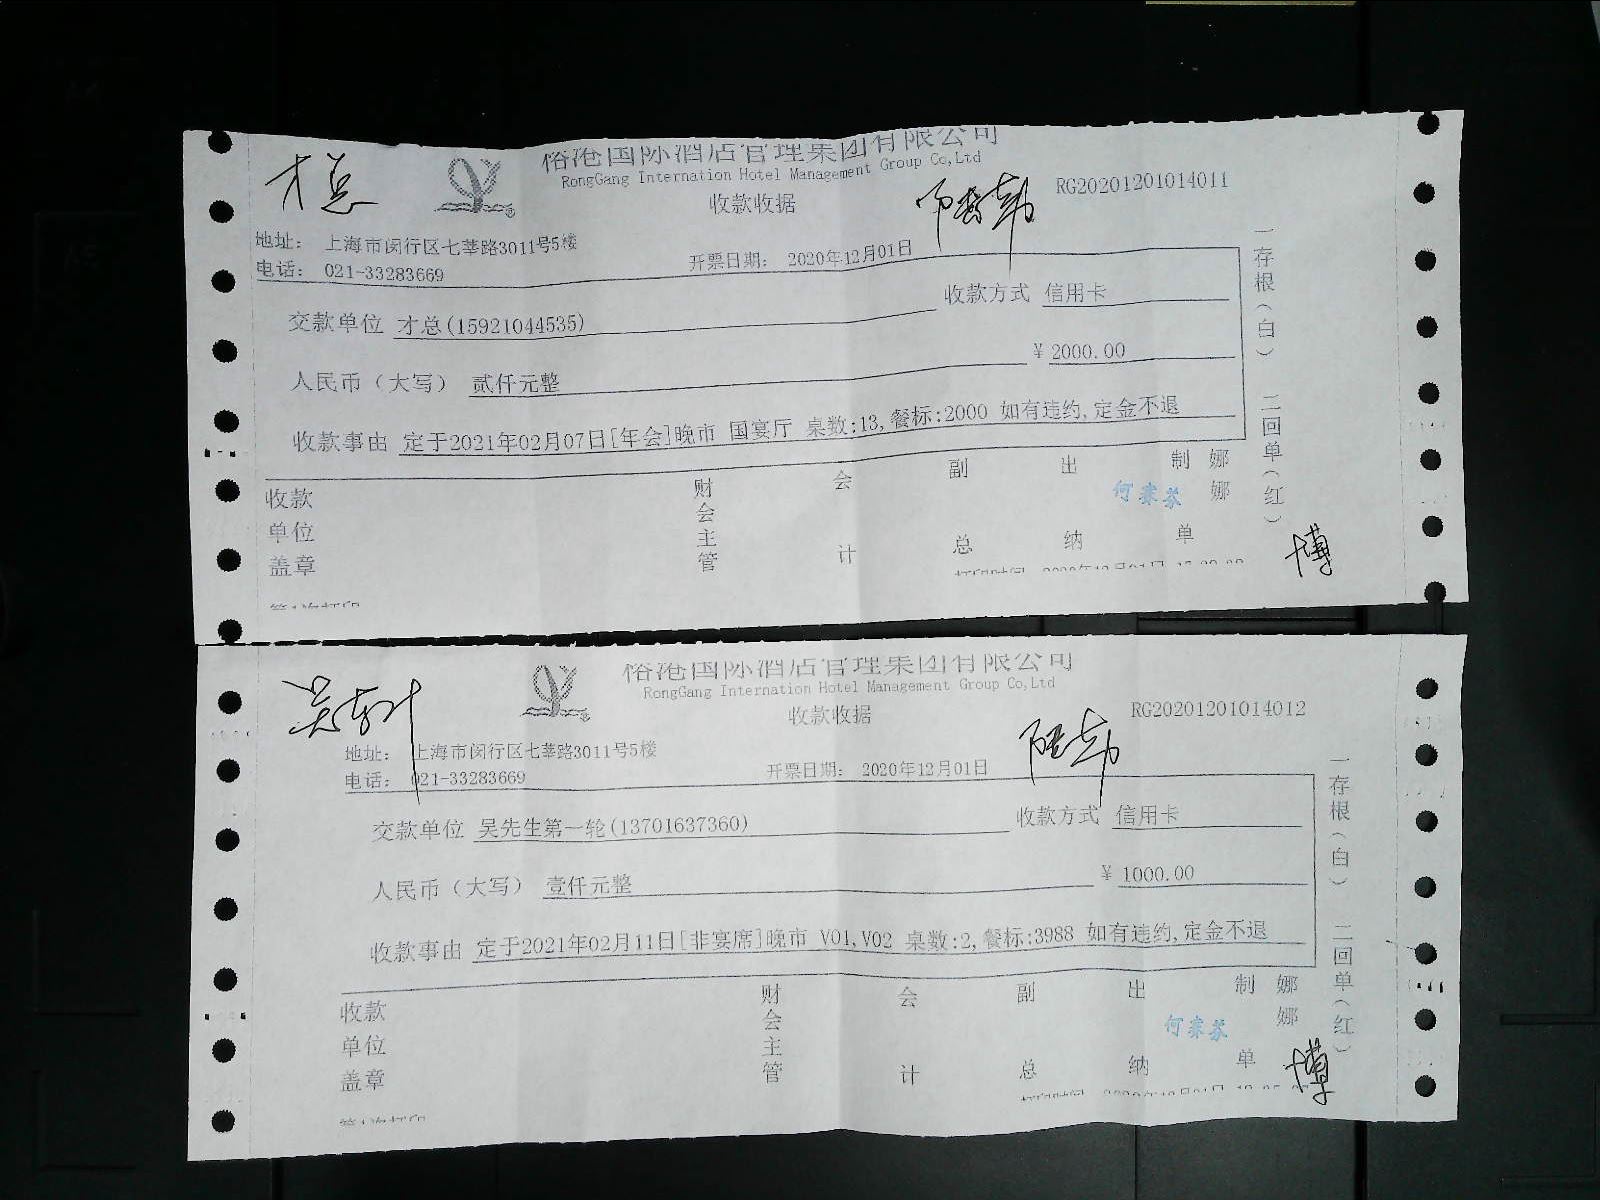 才总
裕港国际酒店管理集团有限公司
RongGang Internation Hotel Management Group Co,Ltd
收款收据
RG20201201014011
地址： 上海市闵行区七莘路3011号5楼
电话： 021-33283669
开票日期： 2020年12月01日
交款单位 才总(15921044535)
收款方式 信用卡
人民币（大写） 贰仟元整
¥ 2000.00
收款事由 定于2021年02月07日[年会]晚市 国宴厅 桌数:13,餐标:2000 如有违约,定金不退
收款单位盖章
财会主管
会计
副总
出纳
制单
娜娜
一存根（白） 二回单（红）
博
裕港国际酒店管理集团有限公司
RongGang Internation Hotel Management Group Co,Ltd
收款收据
RG20201201014012
地址： 上海市闵行区七莘路3011号5楼
电话： 021-33283669
开票日期： 2020年12月01日
交款单位 吴先生第一轮(13701637360)
收款方式 信用卡
人民币（大写） 壹仟元整
¥ 1000.00
收款事由 定于2021年02月11日[非宴席]晚市 V01,V02 桌数:2,餐标:3988 如有违约,定金不退
收款单位盖章
财会主管
会计
副总
出纳
制单
娜娜
一存根（白） 二回单（红）
博